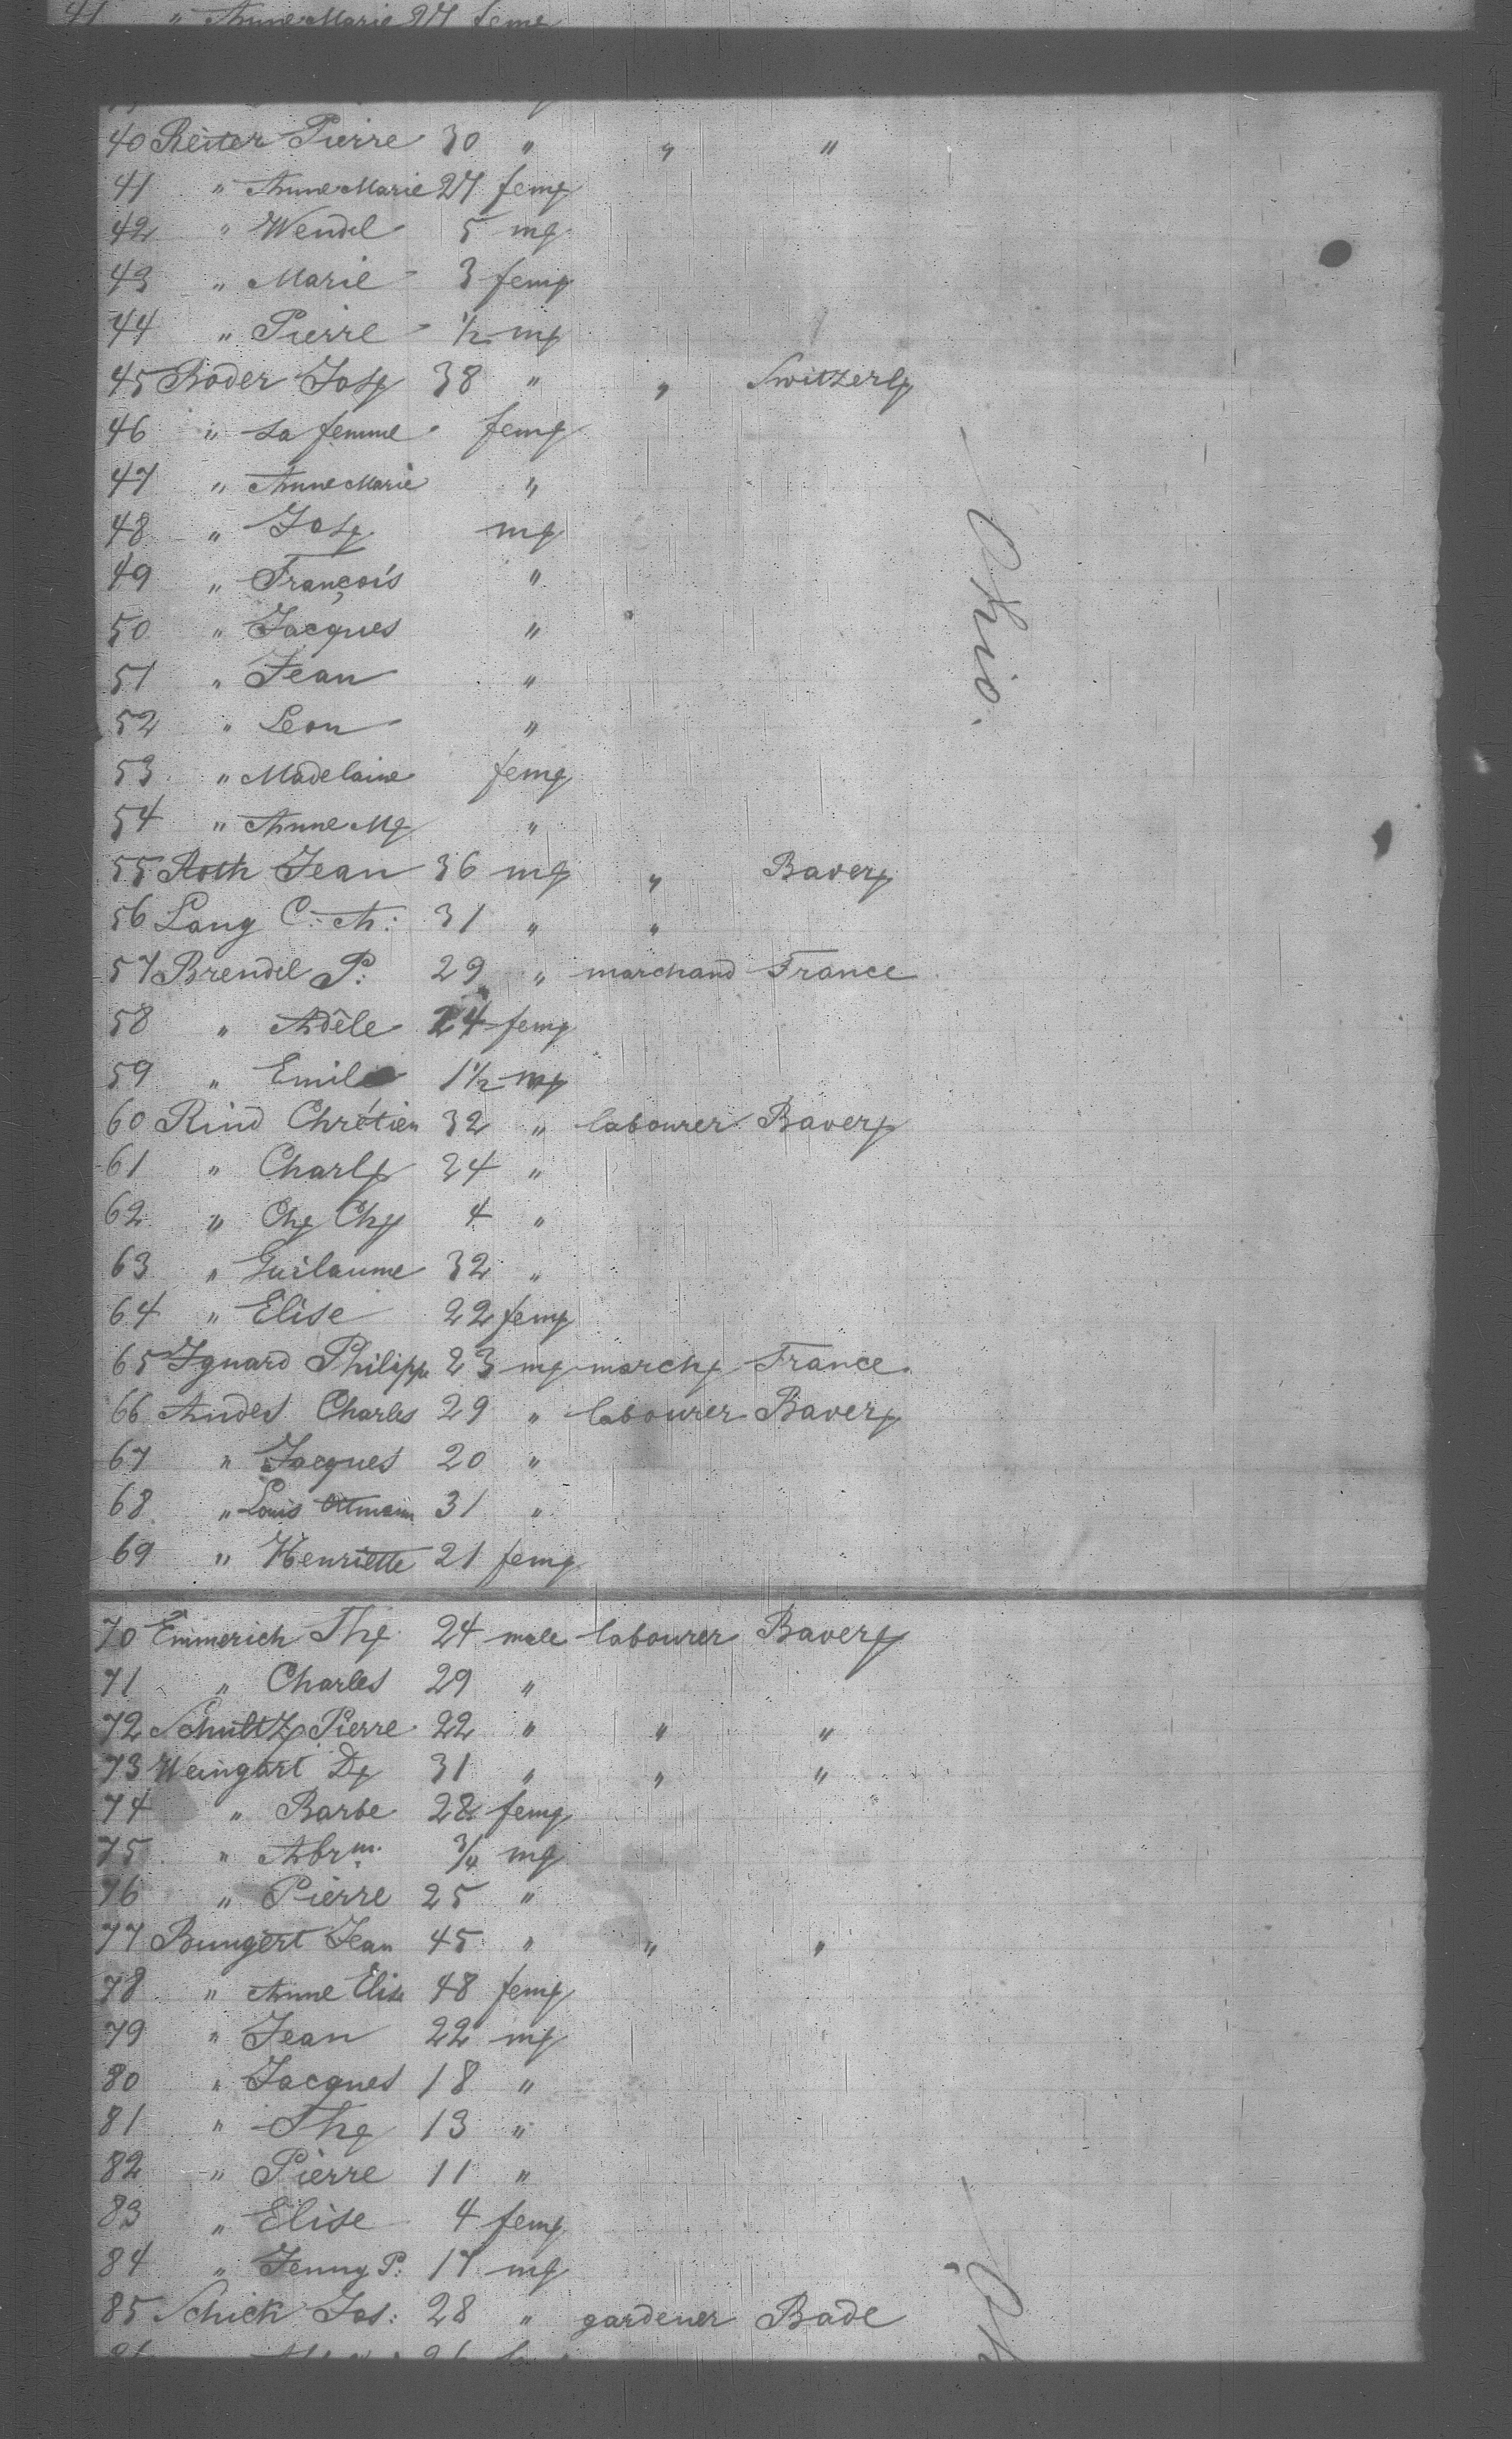 41 " Anne Marie 27 feme
40 Reiter Pierre 30 " " "
41 " Anne Marie 27 feme
42 " Wendel 5 me
43 " Marie 3 feme
44 " Pierre 1/2 me
45 Bader Jose 38 " " Switzerle
46 " sa femme feme
47 " Anne Marie "
48 " Jose me
49 " François "
50 " Jacques "
51 " Jean "
52 " Leon "
53 " Madelaine feme
54 " Anne Me "
55 Roth Jean 36 me " Bavere
56 Lang C: A: 31 " "
57 Brendel P: 29 " marchand France
58 " Adèle 24 feme
59 " Emile 1 1/2 me
60 Rind Chrétien 32 " labourer Bavere
61 " Charle 34 "
62 " Che Che 4 "
63 " Guilaume 32 "
64 " Elise 22 feme
65 Ignard Philippe 23 me marche France
66 Andes Charles 29 " labourer Bavere
67 " Jacques 20 "
68 " Louis Ottmann 31 "
69 " Henriette 21 feme
Ohio.
70 Emmerich The 24 male labourer Bavere
71 " Charles 29 "
72 Schultz Pierre 22 " " "
73 Weingart De 31 " " "
74 " Barbe 28 feme
75 " Abrm. 3/4 me
76 " Pierre 25 "
77 Bungert Jean 45 " " "
78 " Anne Elise 48 feme
79 " Jean 22 me
80 " Jacques 18 "
81 " The 13 "
82 " Pierre 11 "
83 " Elise 4 feme
84 " Jenny P: 17 me
85 Schick Jos: 28 " gardener Bade